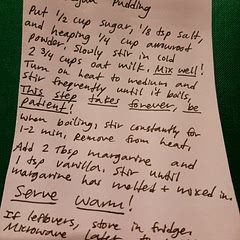 Pudding
Put 1/2 cup sugar, 1/8 tsp salt,
and heaping 1/4 cup arrowroot
powder. Slowly stir in cold
2 3/4 cups oat milk. Mix well!
Turn on heat to medium and
stir frequently until it boils.
This step takes forever, be
patient!
When boiling, stir constantly for
1-2 min, remove from heat.
Add 2 Tbsp margarine and
1 tsp vanilla. Stir until
margarine has melted + mixed in.
Serve warm!
If leftovers, store in fridge.
Microwave later to